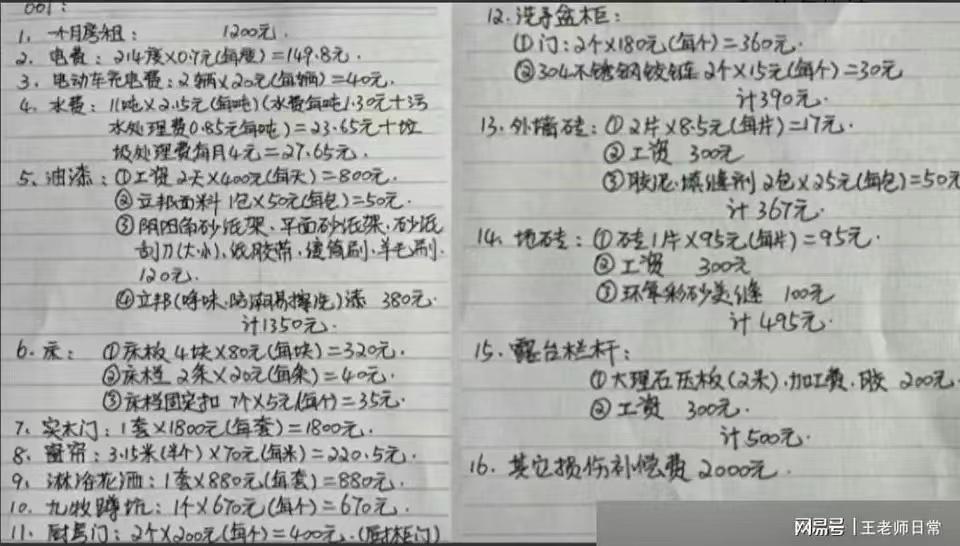 001:
1. 一个月房租: 1200元.
2. 电费: 214度×0.7元(每度)=149.8元.
3. 电动车充电费: 2辆×20元(每辆)=40元.
4. 水费: 11吨×2.15元(每吨)(水费每吨1.30元+污
水处理费0.85元每吨)=23.65元+垃
圾处理费每月4元=27.65元.
5. 油漆: ①工资 2天×400元(每天)=800元.
②立邦面料 1包×50元(每包)=50元.
③阴阳角砂纸架、平面砂纸架、砂纸
刮刀(大小)、纸胶带、滚筒刷、羊毛刷.
120元.
④立邦(净味.防潮易擦洗)漆 380元.
计1350元.
6. 床: ①床板 4块×80元(每块)=320元.
②床档 2条×20元(每条)=40元.
③床档固定扣 7个×5元(每个)=35元.
7. 实木门: 1套×1800元(每套)=1800元.
8. 窗帘: 3.15米(半个)×70元(每米)=220.5元.
9. 淋浴花洒: 1套×880元(每套)=880元.
10. 九牧蹲坑: 1个×670元(每个)=670元.
11. 厨房门: 2个×200元(每个)=400元.(厨柜门)
12. 洗手盆柜:
①门: 2个×180元(每个)=360元.
②304不锈钢铰链 2个×15元(每个)=30元
计390元.
13. 外墙砖: ①2片×8.5元(每片)=17元.
②工资 300元
③胶泥.填缝剂 2包×25元(每包)=50元
计367元.
14. 地砖: ①砖1片×95元(每片)=95元.
②工资 300元
③环氧彩砂美缝 100元
计495元.
15. 露台栏杆:
①大理石压板(2米).加工费.胶 200元.
②工资 300元.
计500元.
16. 其它损伤补偿费 2000元.
网易号 | 王老师日常